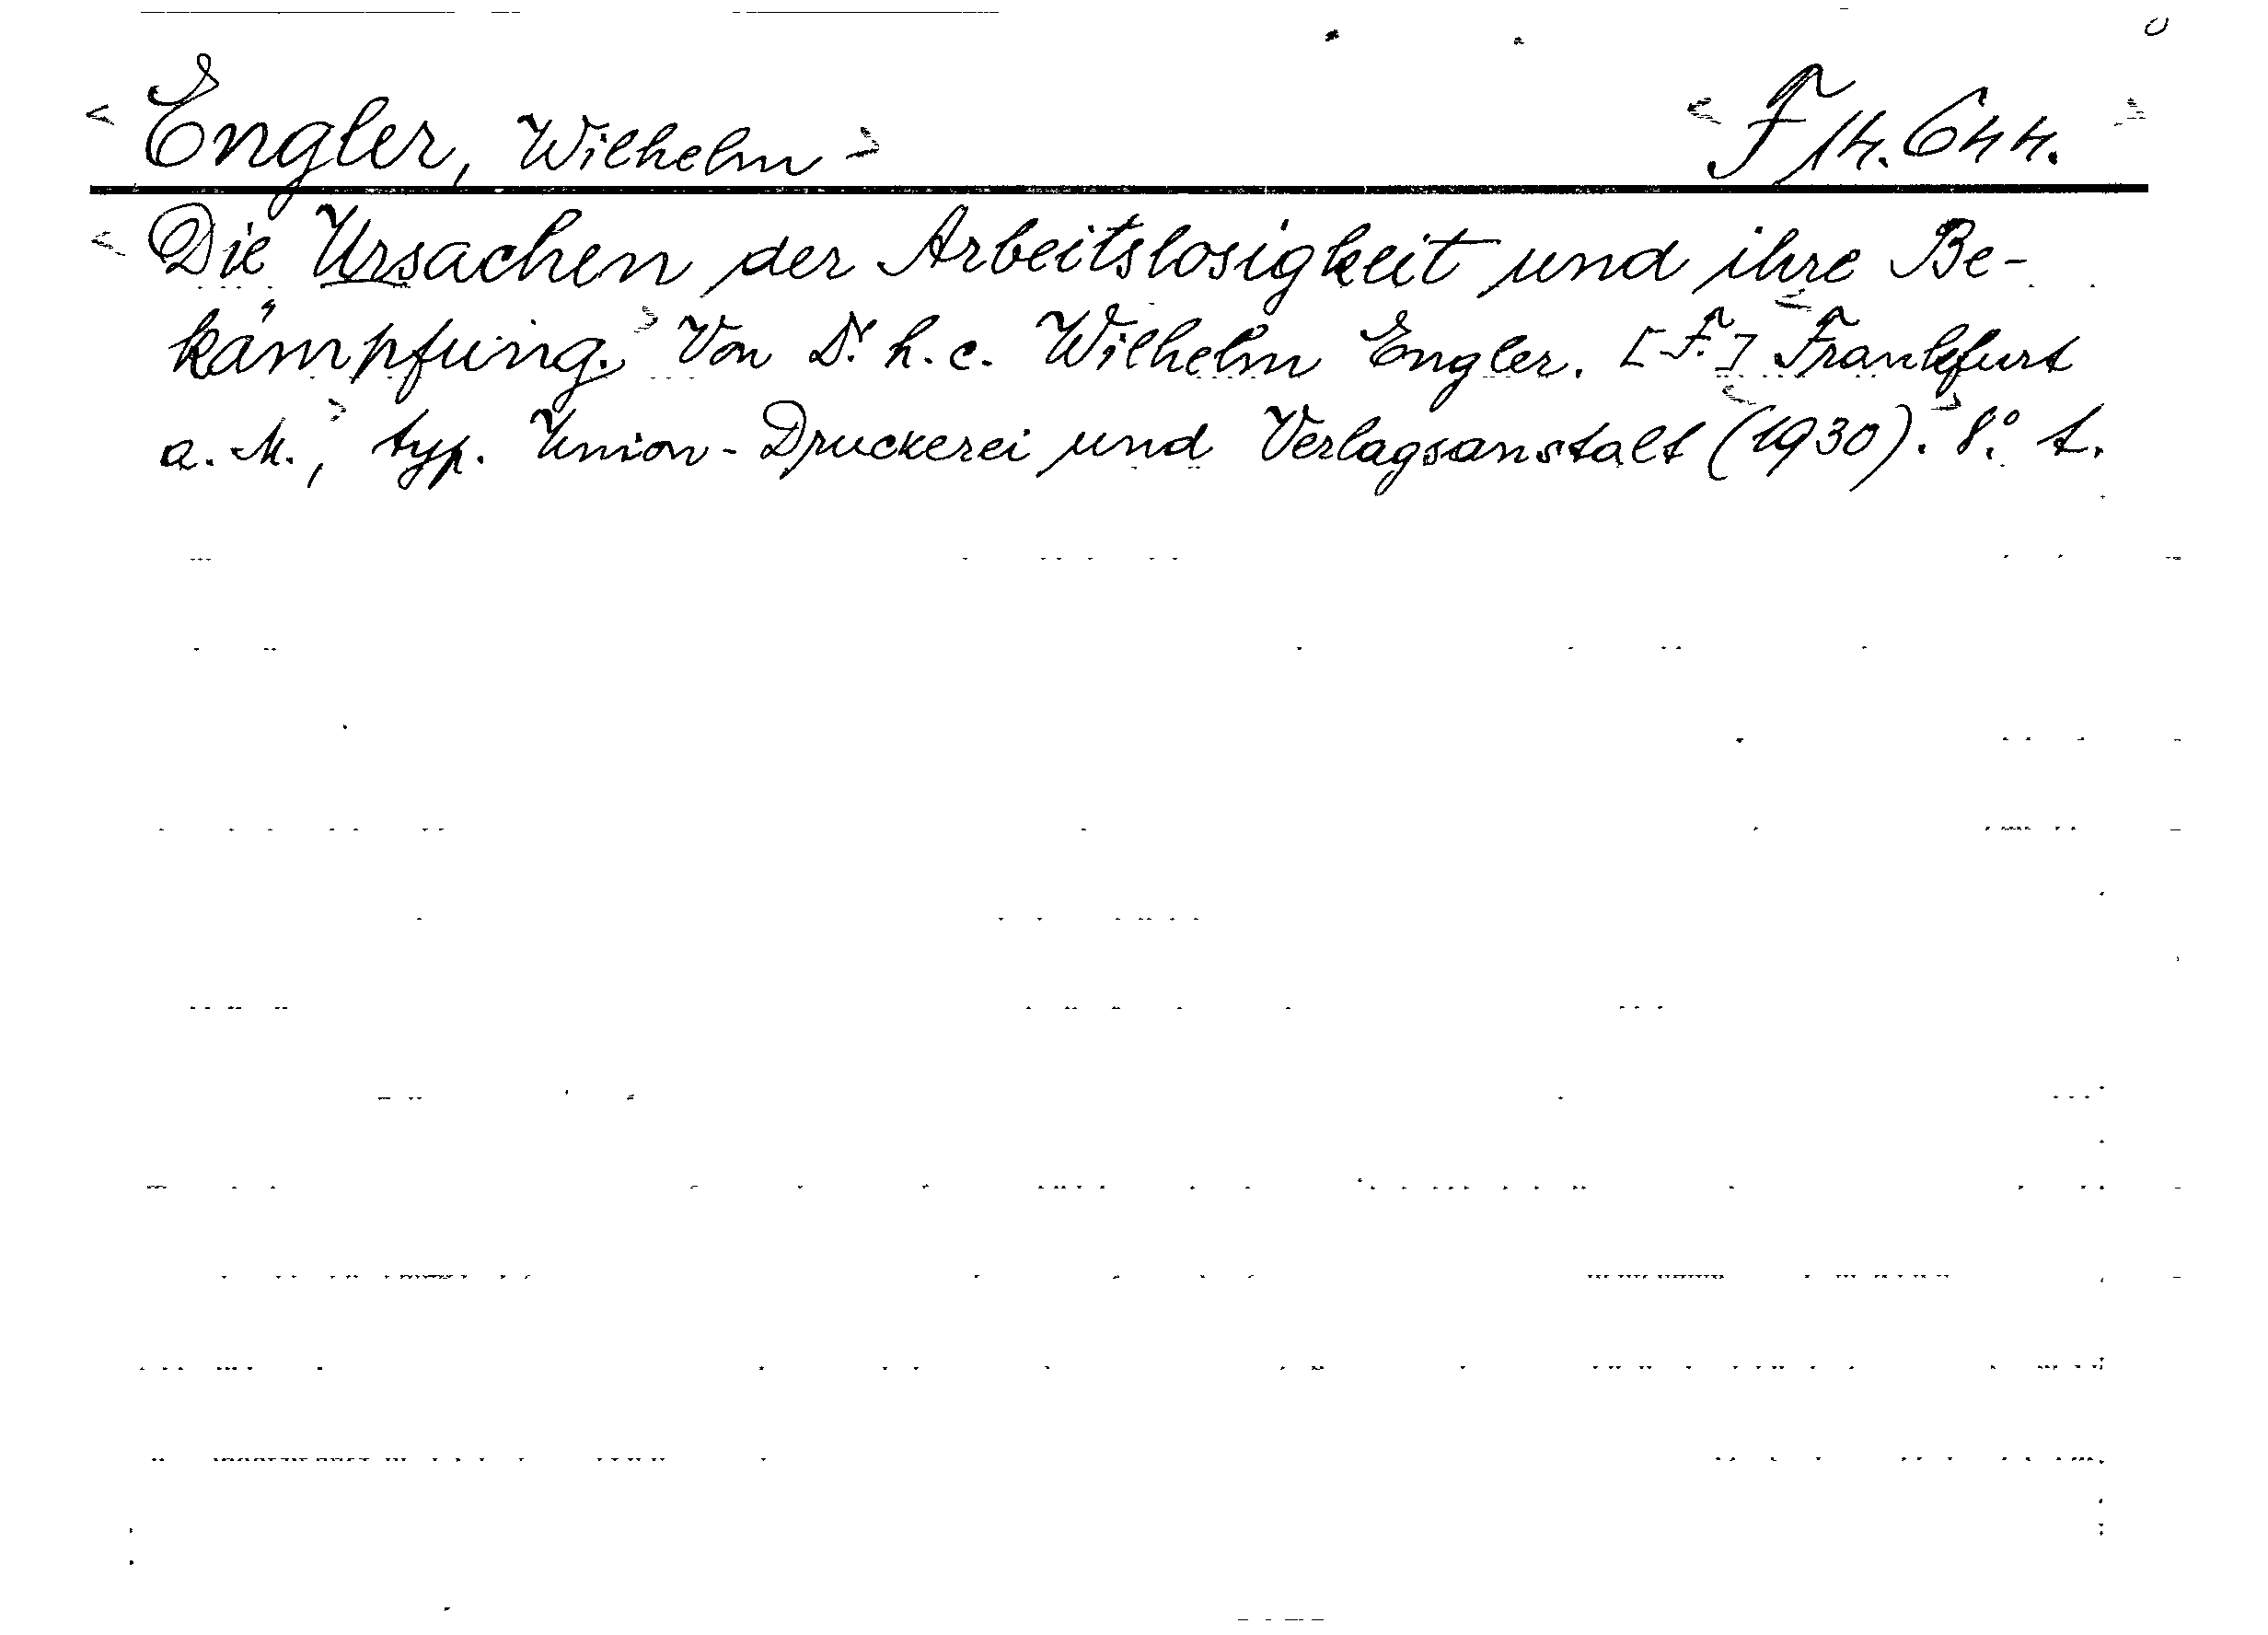 < Engler, Wilhelm > < F 14.644. >
< Die Ursachen der Arbeitslosigkeit und ihre Be-
kämpfung. > Von Dr. h. c. Wilhelm Engler. [F.] < Frankfurt
a. M., > typ. Union-Druckerei und Verlagsanstalt < (1930). > 8.° t.